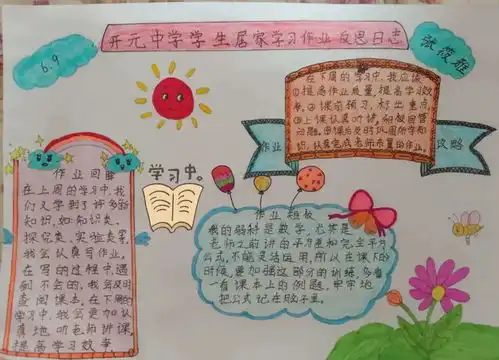 开元中学学生居家学习作业反思日志
6.9
张筱雅
作业回顾
在上周的学习中,我
们又学到了许多新
知识,如:知识类,
探究类、实验类等,
我会认真写作业,
在写的过程中遇
到不会的,我会及时
查阅课本。在下周的
学习中,我会更加认
真地听老师讲课,
提高学习效率。
学习中。
在下周的学习中,我应该
①提高作业质量,提高学习效
率。②课前预习,标出重点,
③上课认真听讲,积极回答
问题。④课后及时巩固所学知
识,认真完成老师布置的作业。
作业
攻略
作业短板
我的弱科是数学,尤其是
老师之前讲的平方差和完全平方
公式,不能灵活运用,所以在课下的
时候,要加强这部分的训练,多看
一看课本上的例题,牢牢地
把公式记在脑子里。